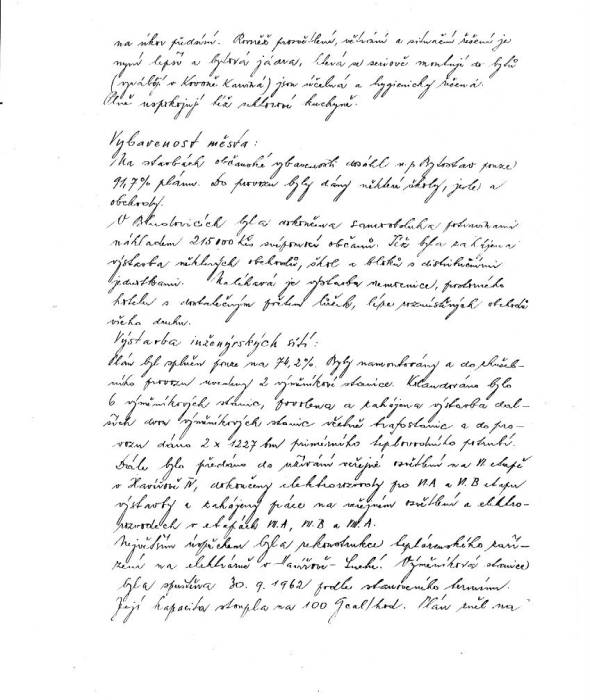 na úkor předsíní. Rovněž prosvětlení, větrání a situační řešení je
nyní lepší a bytová jádra, která se seriově montují do bytů
(vyrábějí v Kovoně Karviná) jsou účelná a hygienicky řešená.
Plně uspokojují též sektorové kuchyně.
Vybavenost města:
Na stavbách občanské vybavenosti dosáhl n.p. Bytostav pouze
91,7% plánu. Do provozu byly dány některé školy, jesle a
obchody.
V Bludovicích byla dokončena samoobsluha potravinami
nákladem 215000 Kčs svépomocí občanů. Též byla zahájena
výstavba některých obchodů, škol a bloků s distribučními
jednotkami. Naléhavá je výstavba nemocnice, prostorného
hotelu s dostatečným počtem lůžek, lépe rozmístěných obchodů
všeho druhu.
Výstavba inženýrských sítí:
Plán byl splněn pouze na 74,2%. Byly namontovány a do zkušeb-
ního provozu uvedeny 2 výměníkové stanice. bylo
6 výměníkových stanic, povolena a zahájena výstavba dal-
ších dvou výměníkových stanic včetně trafostanic a do pro-
vozu dáno 2 x 1227 bm primérního teplovodního potrubí.
Dále bylo předáno do užívání veřejné osvětlení na VI etapě
v Havířově IV, dokončeny elektrorozvody pro VI A a VI B etapu
výstavby a zahájeny práce na veřejném osvětlení a elektro-
rozvodech v etapách VI.A, VI.B a VII.A.
Největším úspěchem byla rekonstrukce teplárenského zaří-
zení na elektrárně v Havířově-Suché. Výměníková stanice
byla spuštěna 30. 9. 1962 podle stanoveného termínu.
Její kapacita stoupla na 100 Gcal/hod. Plán zněl na